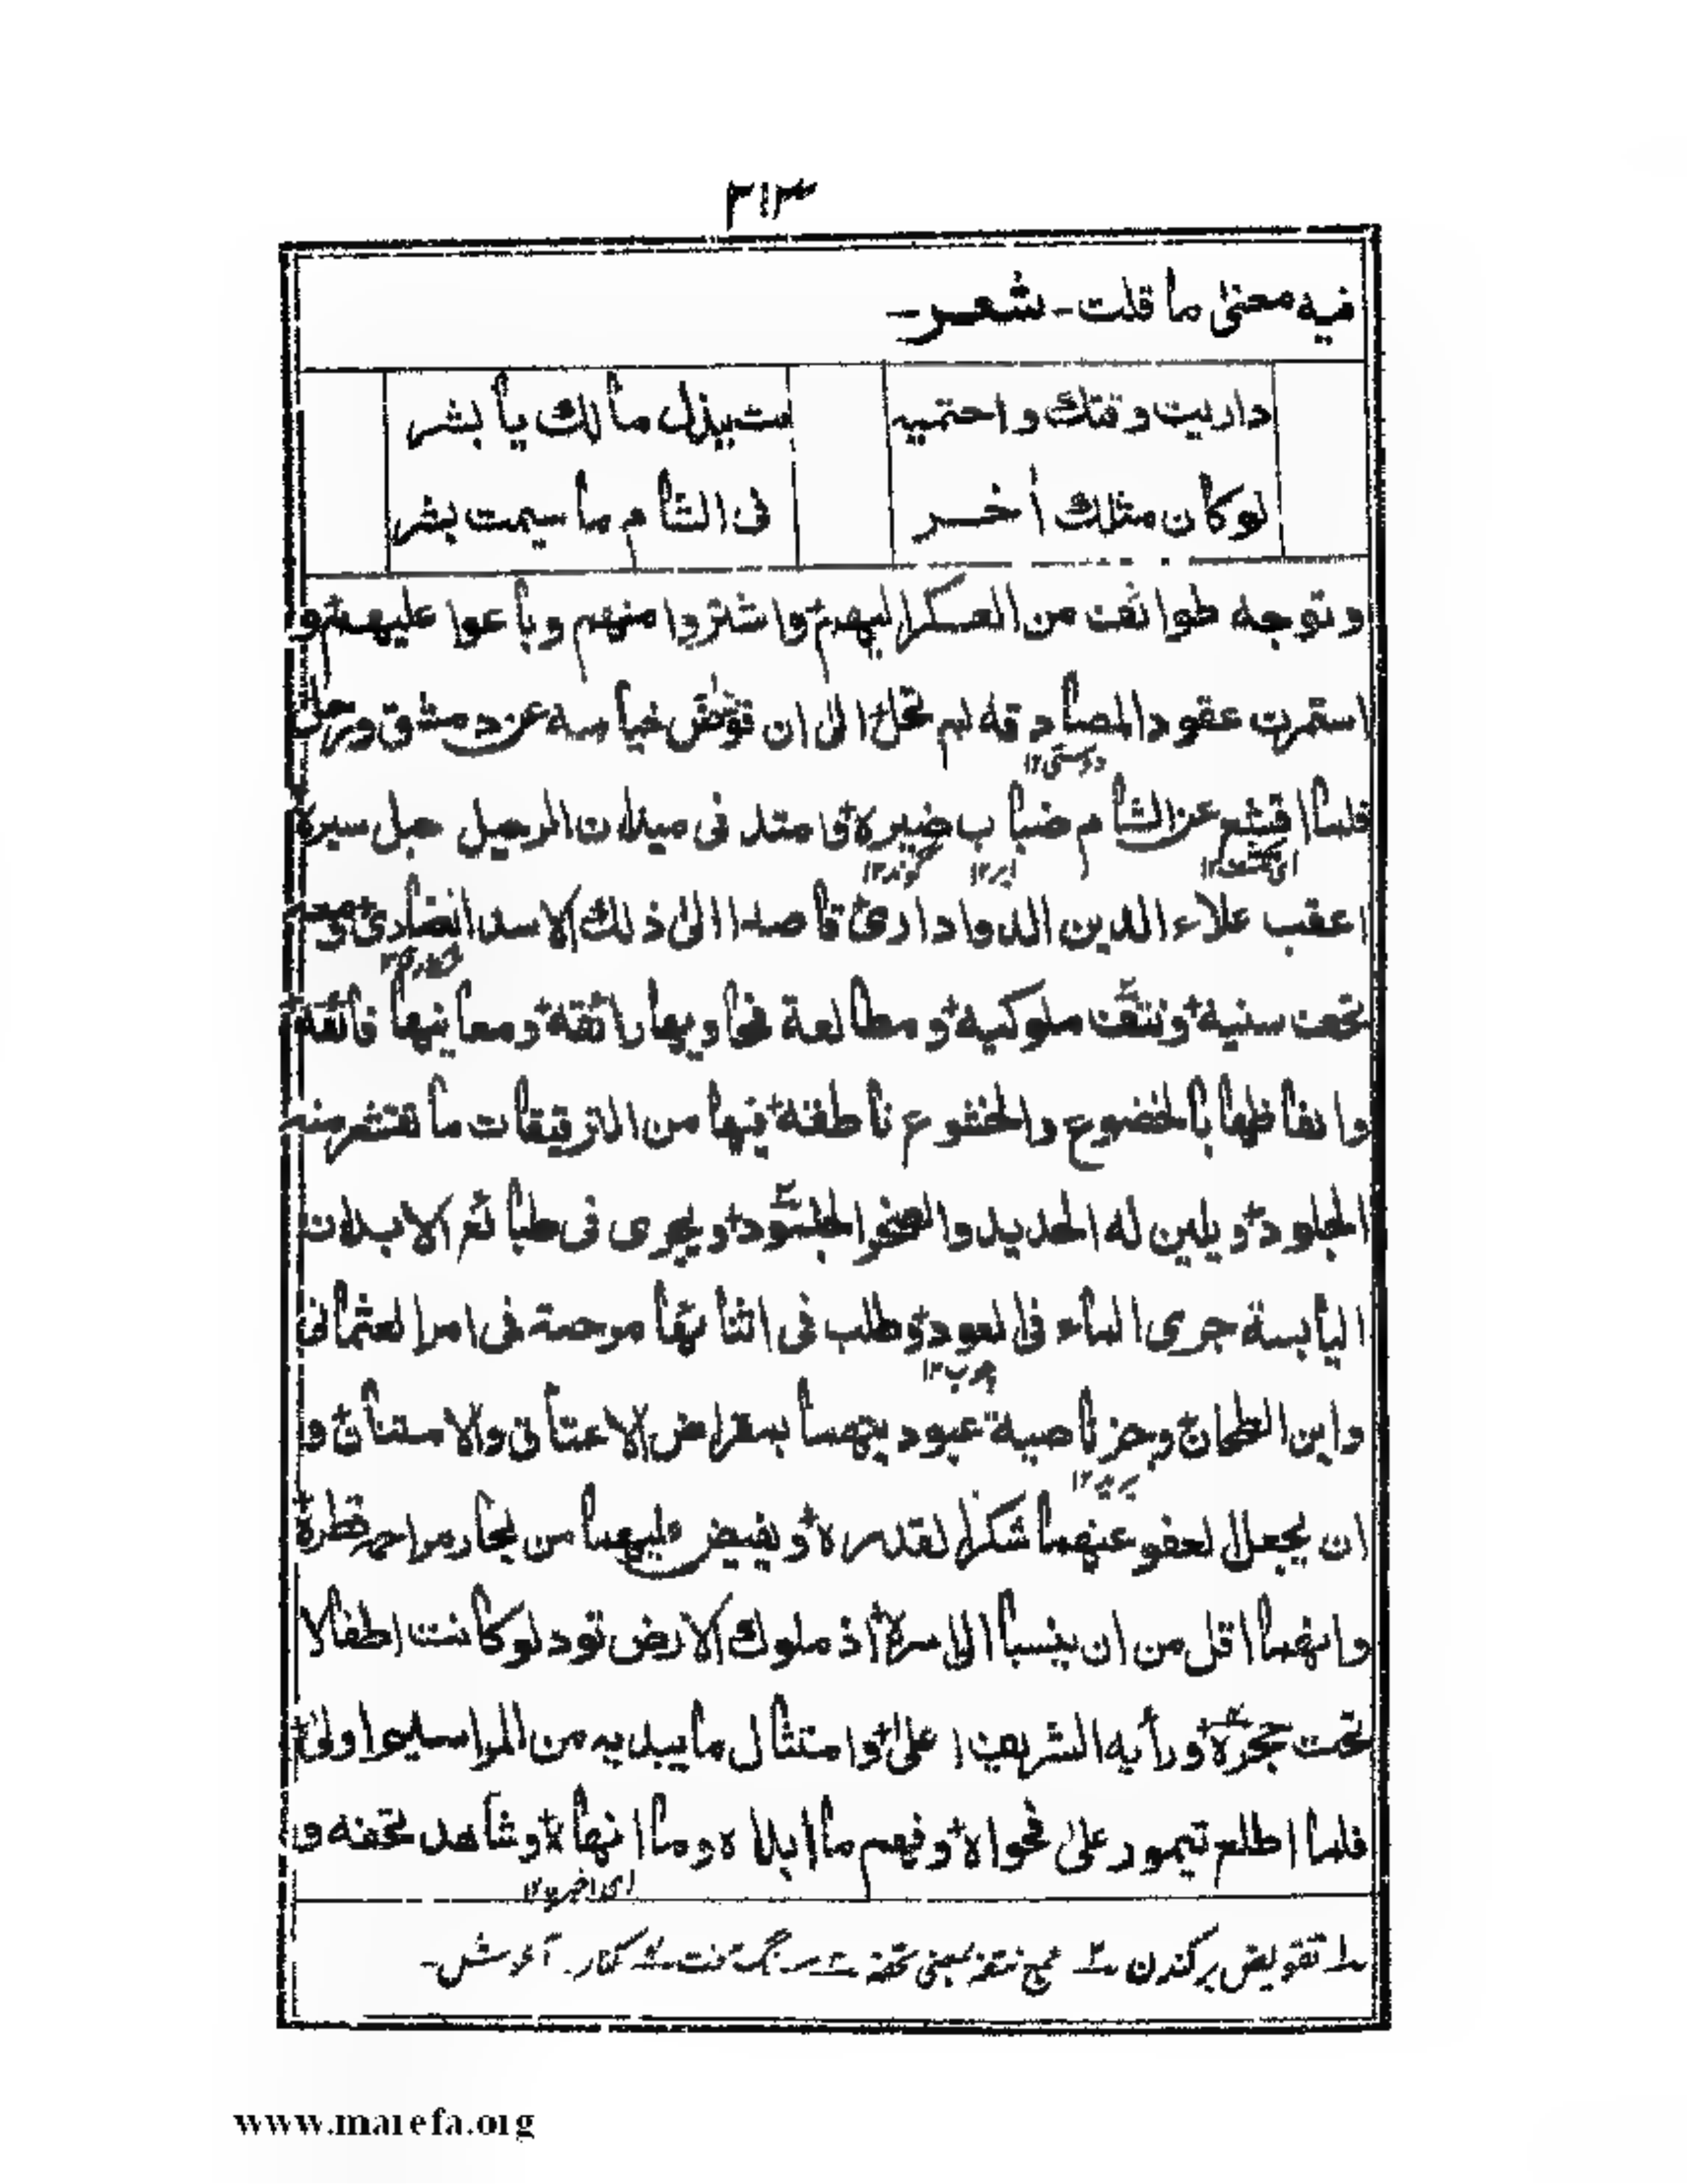 ٣١٣
فيه معنى ما قلت - شعر -
داريت وقتك واحتميت ببذل مالك يا بشر
لو كان مثلك أخر فى الشام ما سيمت بشر
وتوجه طوائف من العسكر اليهم واشتروا منهم وباعوا عليهم و
استمرت عقود المصادقه لم تحل الى ان قوض خيامه عن دمشق ورحل
دوستى ١٢
فلما اقشع عن الشام ضباب ضيره وامتد فى ميدان الرحيل حبل سيره
اى كشف ١٢ ابر ١٢ گزند ١٢
اعقب علاء الدين الدوادارى قاصدا الى ذلك الاسد الضارى ومعه
تحف سنية ونتف ملوكيه ومطالعة فحاويها رائقة ومعانيها فائقة
والفاظها بالخضوع والخشوع ناطقة فيها من الترقيقات ما تقشعر منه
الجلود ويلين له الحديد والصخر الجلمود ويجرى فى طبائع الابدان
اليابسة جرى الماء فى العود وطلب فى اثنائها مرحمة فى امر العثمانى
چوب ١٢
وابن الطحان وجز ناصية عبوديتهما بمقراض الاعتاق والامتنان و
ان يجعل العفو عنهما شكرا لقدره ويفيض عليهما من بحار مراحمه قطرة
وانهما اقل من ان ينسبا الى اسره اذ ملوك الارض تود لو كانت اطفالا
تحت حجره ورأيه الشريف اعلى وامتثال ما يبديه من المراسيم اولى
فلما اطلع تيمور على فحواه وفهم ما ابداه وما انهاه وشاهد تحفه و
اى اخبر ١٢
تقويض بركندن جمع نتفه بمعنى تحفه سنگ سخت كنار - آغوش -
www.marefa.org